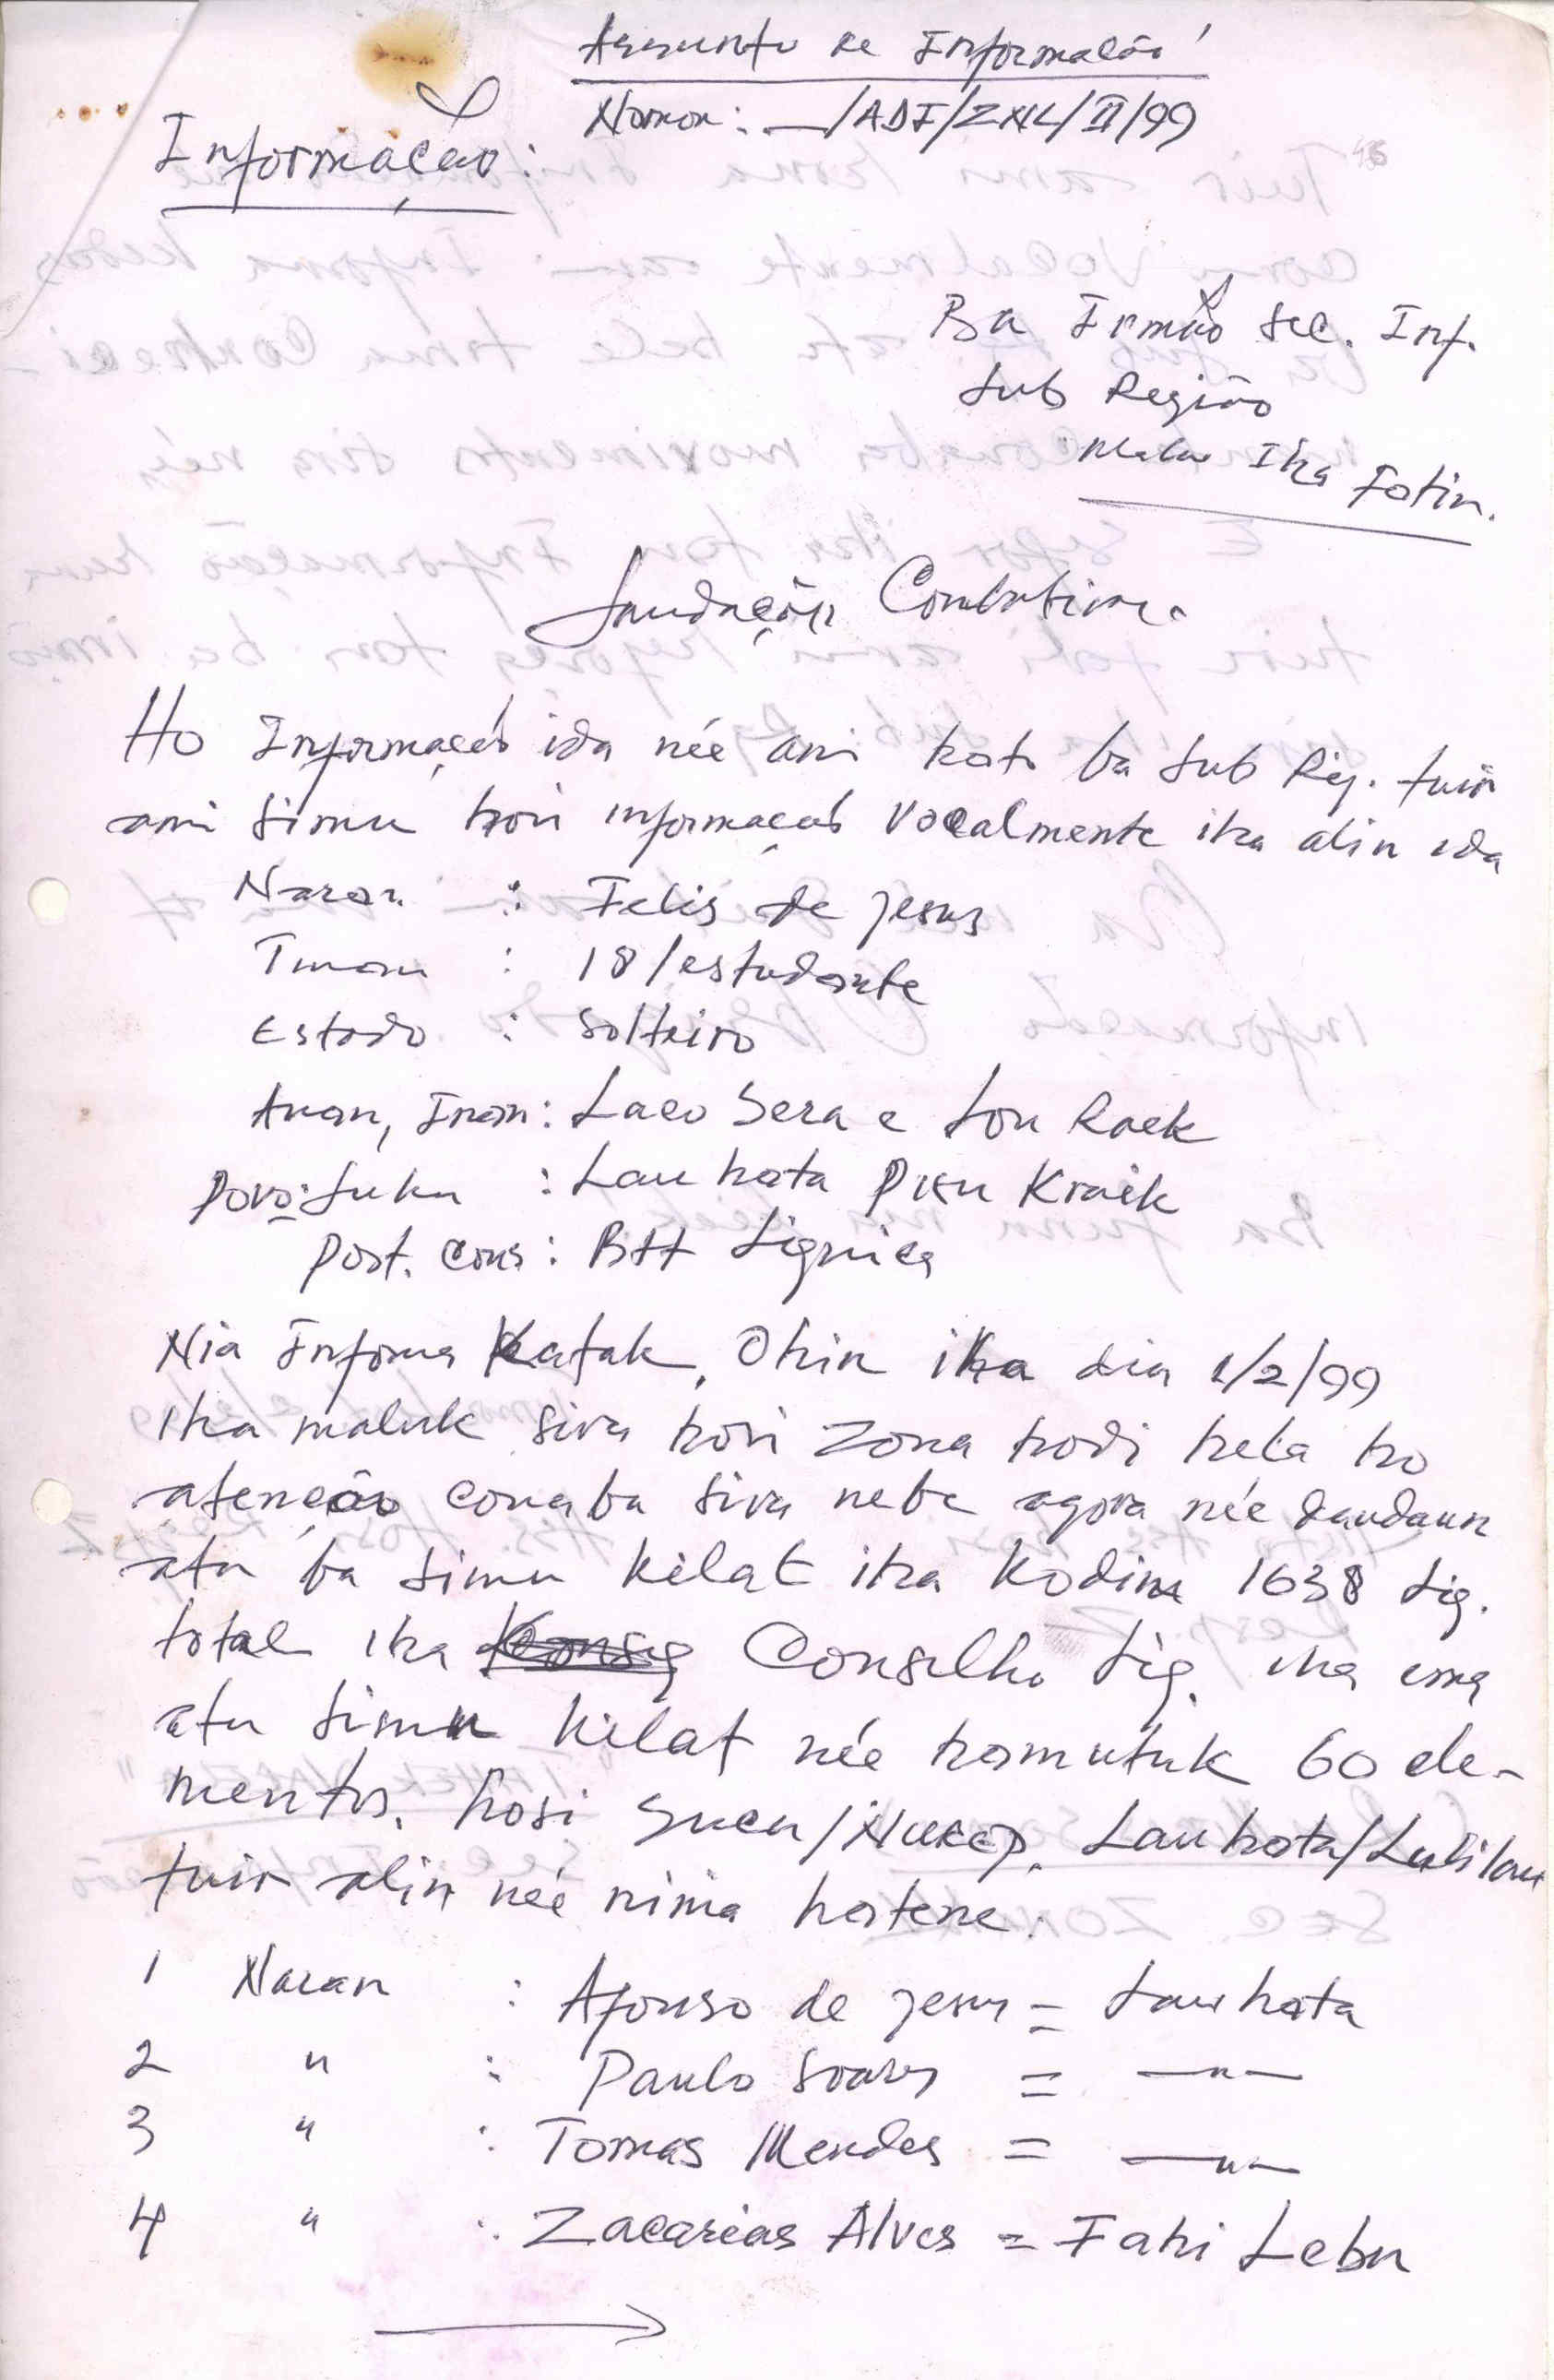 Assunto de Informacão
Nomor: __/ADF/ZXL/II/99
46
Informação:
Ba Irmão Sec. Inf.
Sub Região
Iha Fatin.
Saudação Combativa.
Ho Informação ida née ami hato ba Sub Rig. tuir
ami simu hori informação Vocalmente iha alin ida
Naran : Felis de Jesus
Tinan : 18/estudante
Estado : Solteiro
Aman, Inan: Laco Sera e Sou Raek
Povo: Suku : Lau hata Pisu Kraik
Post. Cons: Btt Liquica
Nia Informa Katak, Ohin iha dia 1/2/99
Iha maluk sira hori Zona hodi hela ho
atenção conaba sira nebe agora née daudaun
atu ba simu kilat iha Kodim 1638 Liq.
total iha Conselho Liq. iha ema
atu simu kilat née hamutuk 60 ele-
mentos. hosi Lau hata/
tuir alin néé ninia hatene.
1 Naran : Afonso de Jesus = Lau hata
2 " : Paulo Soares = —"—
3 " : Tomas Mendes = —"—
4 " : Zacarias Alves = Fahi Lebu